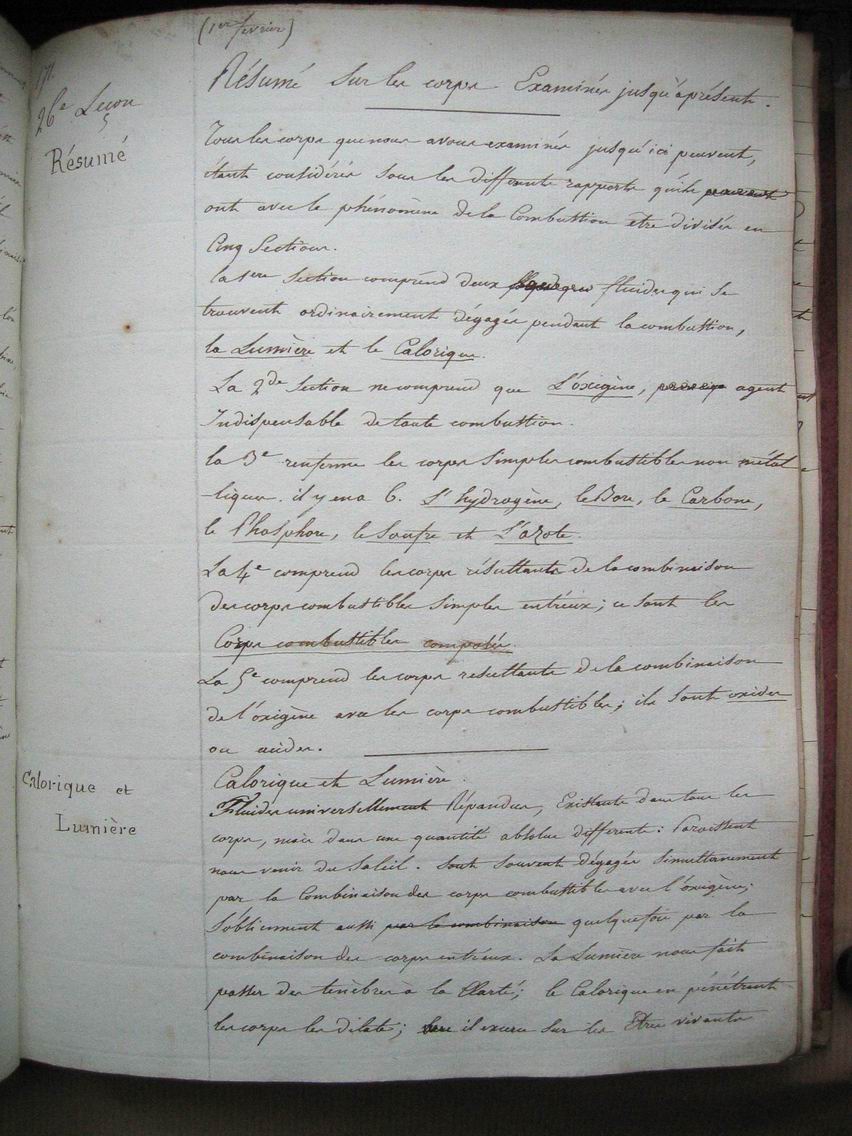 (1er fevrier)
171.
26e Leçon
Résumé
Résumé sur les corps Examinés jusqu'àprésent.
Tous les corps que nous avons examinés jusqu'ici peuvent,
étant considérés sous les différents rapports qu'ils peuvent
ont avec le phénomène de la Combustion etre divisés en
Cinq Sections.
la 1ere Section comprend deux fluides qui se
trouvent ordinairement dégagés pendant la combustion,
la Lumière et le Calorique.
La 2de Section ne comprend que L'oxigène, agent
Indispensable de toute combustion.
la 3e renferme les corps simples combustibles non métal
-liques. il y en a 6. L'hydrogène, le Bore, le Carbone,
le Phosphore, le Soufre et L'azote.
La 4e comprend les corps résultants de la combinaison
des corps combustibles simples entr'eux; ce sont les
Corps combustibles composés.
La 5e comprend les corps resultants de la combinaison
de l'oxigène avec les corps combustibles; ils sont oxides
ou acides.
Calorique et
Lumière
Calorique et Lumière.
Fluides universellement Répandus, Existants dans tous les
corps, mais dans une quantité absolue differente: Paroissent
nous venir du Soleil. Sont souvent dégagés simultanement
par la Combinaison des corps combustibles avec l'oxigène;
S'obtiennent aussi par la combinaison quelquefois par la
combinaison des corps entr'eux. La Lumière nous fait
passer des tenèbres à la Clarté; le Calorique en pénétrant
les corps les dilate; il exerce sur les Etres vivants